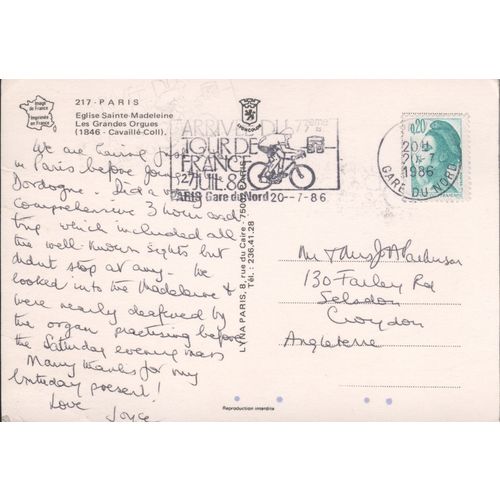 Image de France
Imprimée en France
217 - PARIS
Eglise Sainte-Madeleine
Les Grandes Orgues
(1846 - Cavaillé-Coll).
We are having
in Paris before going
Dordogne. Did a very
Comprehensive 3 hour
trip which included all
the well-known sights but
didnt stop at any. We
looked into the Madeleine &
were nearly deafened by
the organ practising before
the Saturday evening mass
Many thanks for my
birthday present!
Love
Joyce
LYNA PARIS, 8, rue du Caire - 75002 PARIS
Tél. : 236.41.28
ARRIVEE DU 73ème
TOUR DE
FRANCE
27 JUIL. 86
PARIS Gare du Nord 20--7-86
0,20
20H
20-7
1986
GARE DU NORD
Mr & Mrs J A Parkinson
130 Farley Rd
Selsdon
Croydon
Angleterre
Reproduction interdite